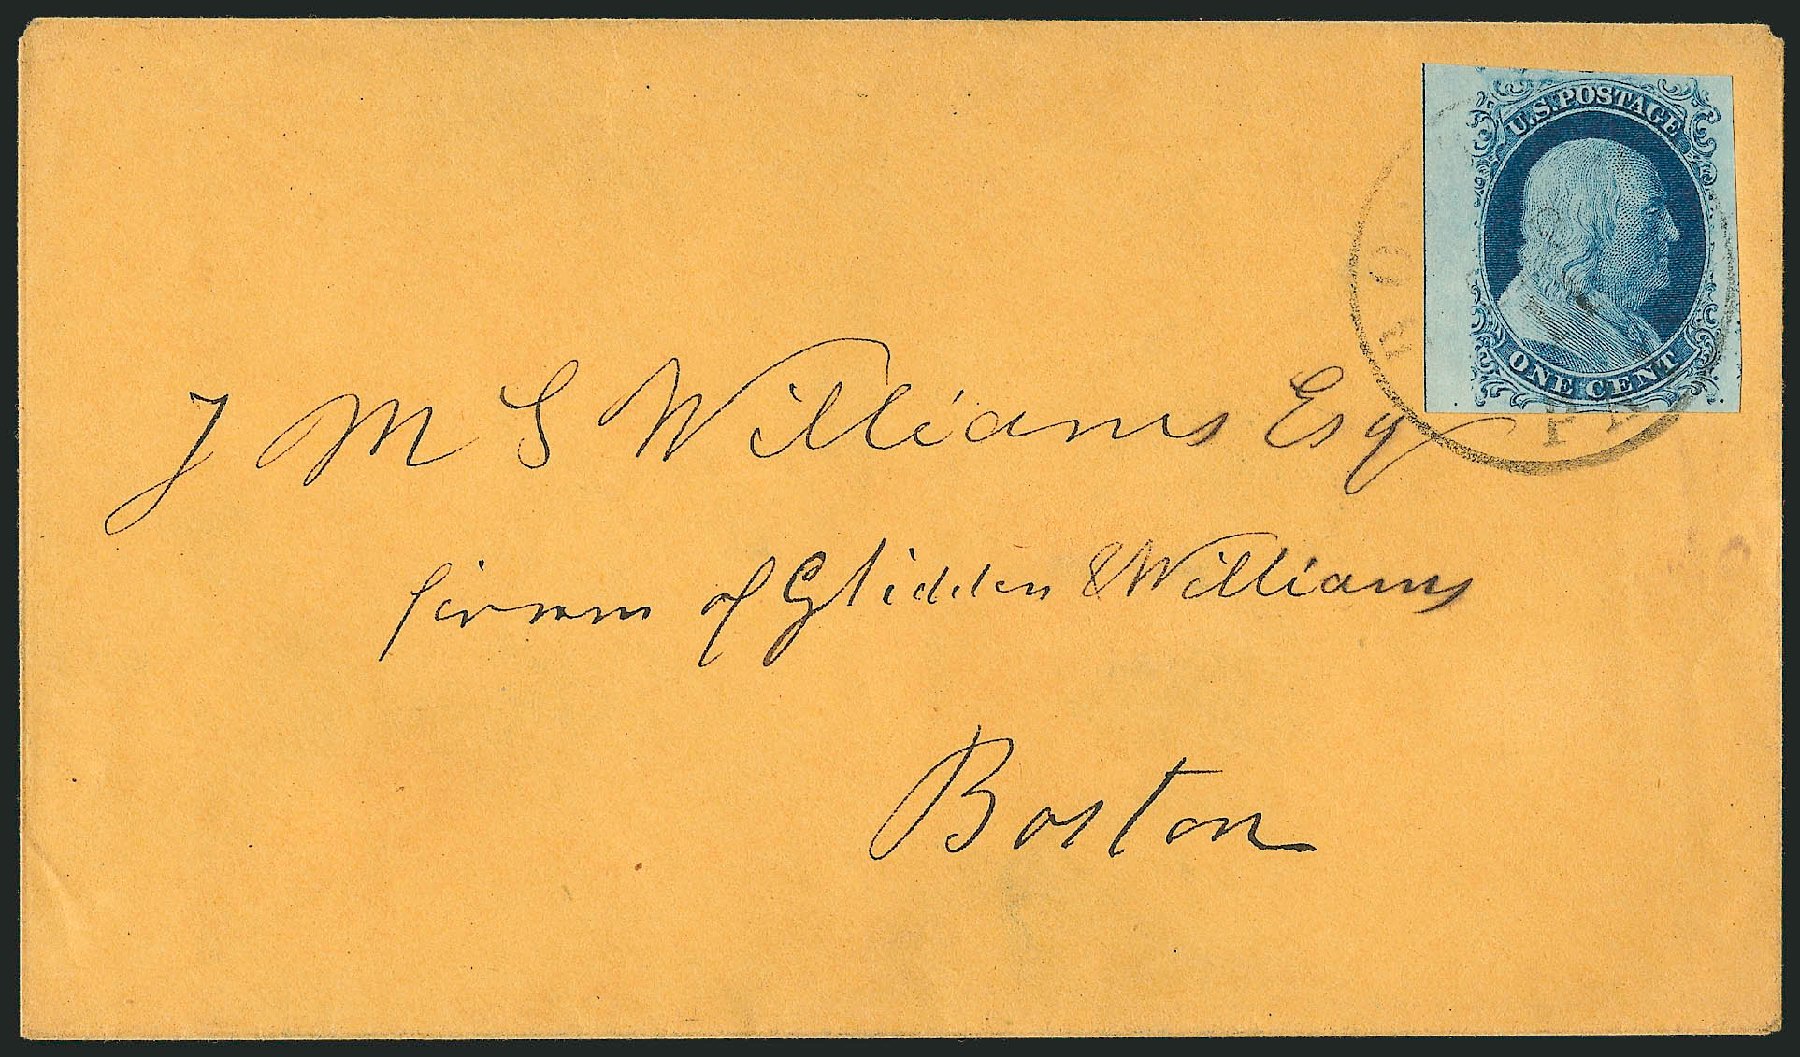 U.S. POSTAGE
ONE CENT
J M S Williams Esq
firm of Glidden & Williams
Boston